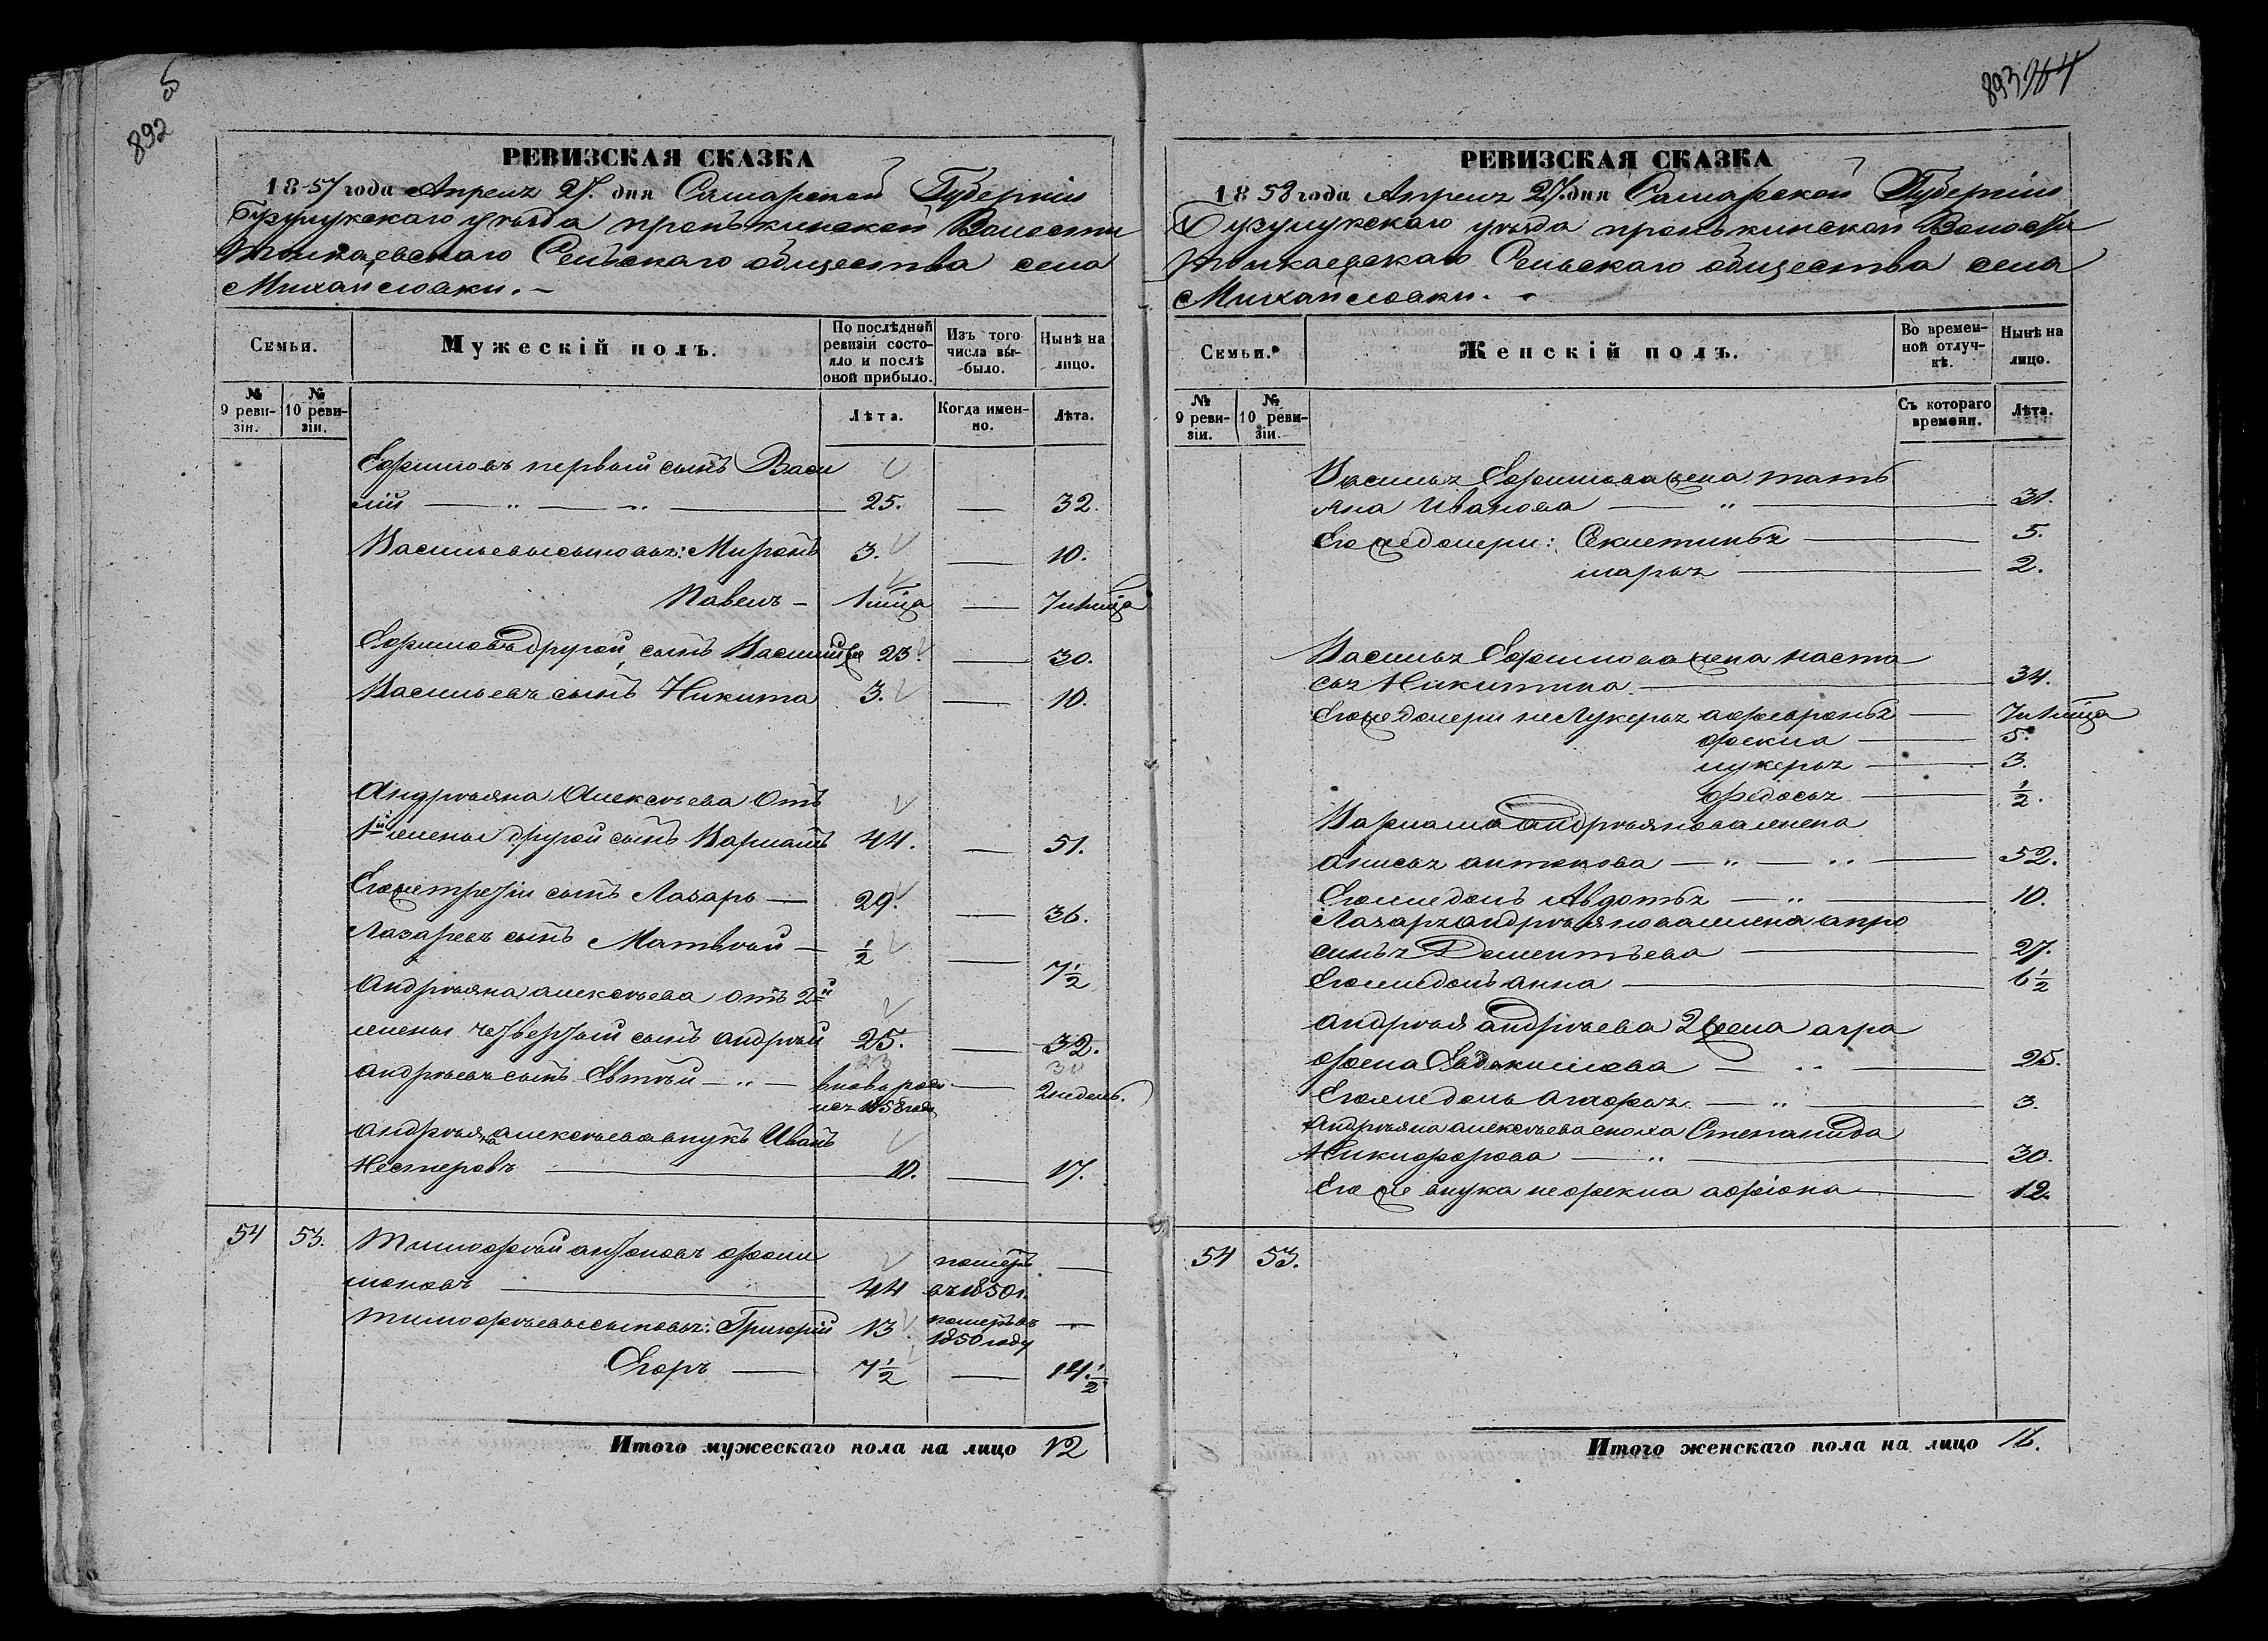 892
РЕВИЗСКАЯ СКАЗКА
1857 года Апреля 27. дня Самарской Губернии
Бузулукскаго уѣзда пронькинской Волости
Толкаевскаго Сельскаго общества села
Михайловки.
Семьи.
Мужескій полъ.
По послѣдней ревизіи состояло и послѣ оной прибыло.
Изъ того числа выбыло.
Нынѣ на лицо.
№ 9 ревизіи.
№ 10 ревизіи.
Лѣта.
Когда именно.
Лѣта.
Ефимовъ первый сынъ Васи
лій 25. 32.
Васильевы сыновья: Миронъ 3. 10.
Павелъ 1 мца 7 и 1 мца
Ефимовъ другой сынъ Василий же 23. 30.
Васильевъ сынъ Никита 3. 10.
Андрѣяна Алексѣева Отъ
1й жены другой сынъ Варламъ 44. 51.
Его же третій сынъ Лазарь 29. 36.
Лазаревъ сынъ Матвѣй ½ 7½
Андрѣяна алексѣева отъ 2й
жены четвертый сынъ андрѣй 25. 32.
23 30
андрѣевъ сынъ Евтѣй вновь роди 2 недель.
лся 1858 года
андрѣяна алексѣева внукъ Иванъ
Нестеровъ 10. 17.
54 53. Тимофѣй антоновъ фили
моновъ 44 померъ въ 1850 г.
Тимофѣевы сыновья: Григорій 13 померъ въ 1850 году
Егоръ 7½ 14.½
Итого мужескаго пола на лицо 12
893
РЕВИЗСКАЯ СКАЗКА
1858 года Апреля 27. дня Самарской Губернии
Бузулукскаго уѣзда пронькинской Волости
Толкаевскаго Сельскаго общества села
Михайловки.
Семьи.
Женскій полъ.
Во временной отлучкѣ.
Нынѣ на лицо.
№ 9 ревизіи.
№ 10 ревизіи.
Съ котораго времени.
Лѣта.
Василья Ефимова жена тать
яна Иванова 31.
Его же дочери: Секлетинья 5.
марья 2.
Василья Ефимова жена наста
сья Никитина 34.
Его же дочери не Лукерья афеврѡнья 7 и 1 мца
фекла 5.
лукерья 3.
федосья ½.
Варлама андрѣянова жена
анисья антонова 52.
Его же дочь Авдотья 10.
Лазаря андрѣянова жена апро
синья Дементьева 27.
Его же дочь анна 6½
андрѣя андрѣева 2 жена агра
фена Евдокимова 25.
Его же дочь 3.
Андрѣяна алексѣева сноха Степанида
Никифорова 30.
Его же внука не фекла 12.
54 53.
Итого женскаго пола на лицо 16.